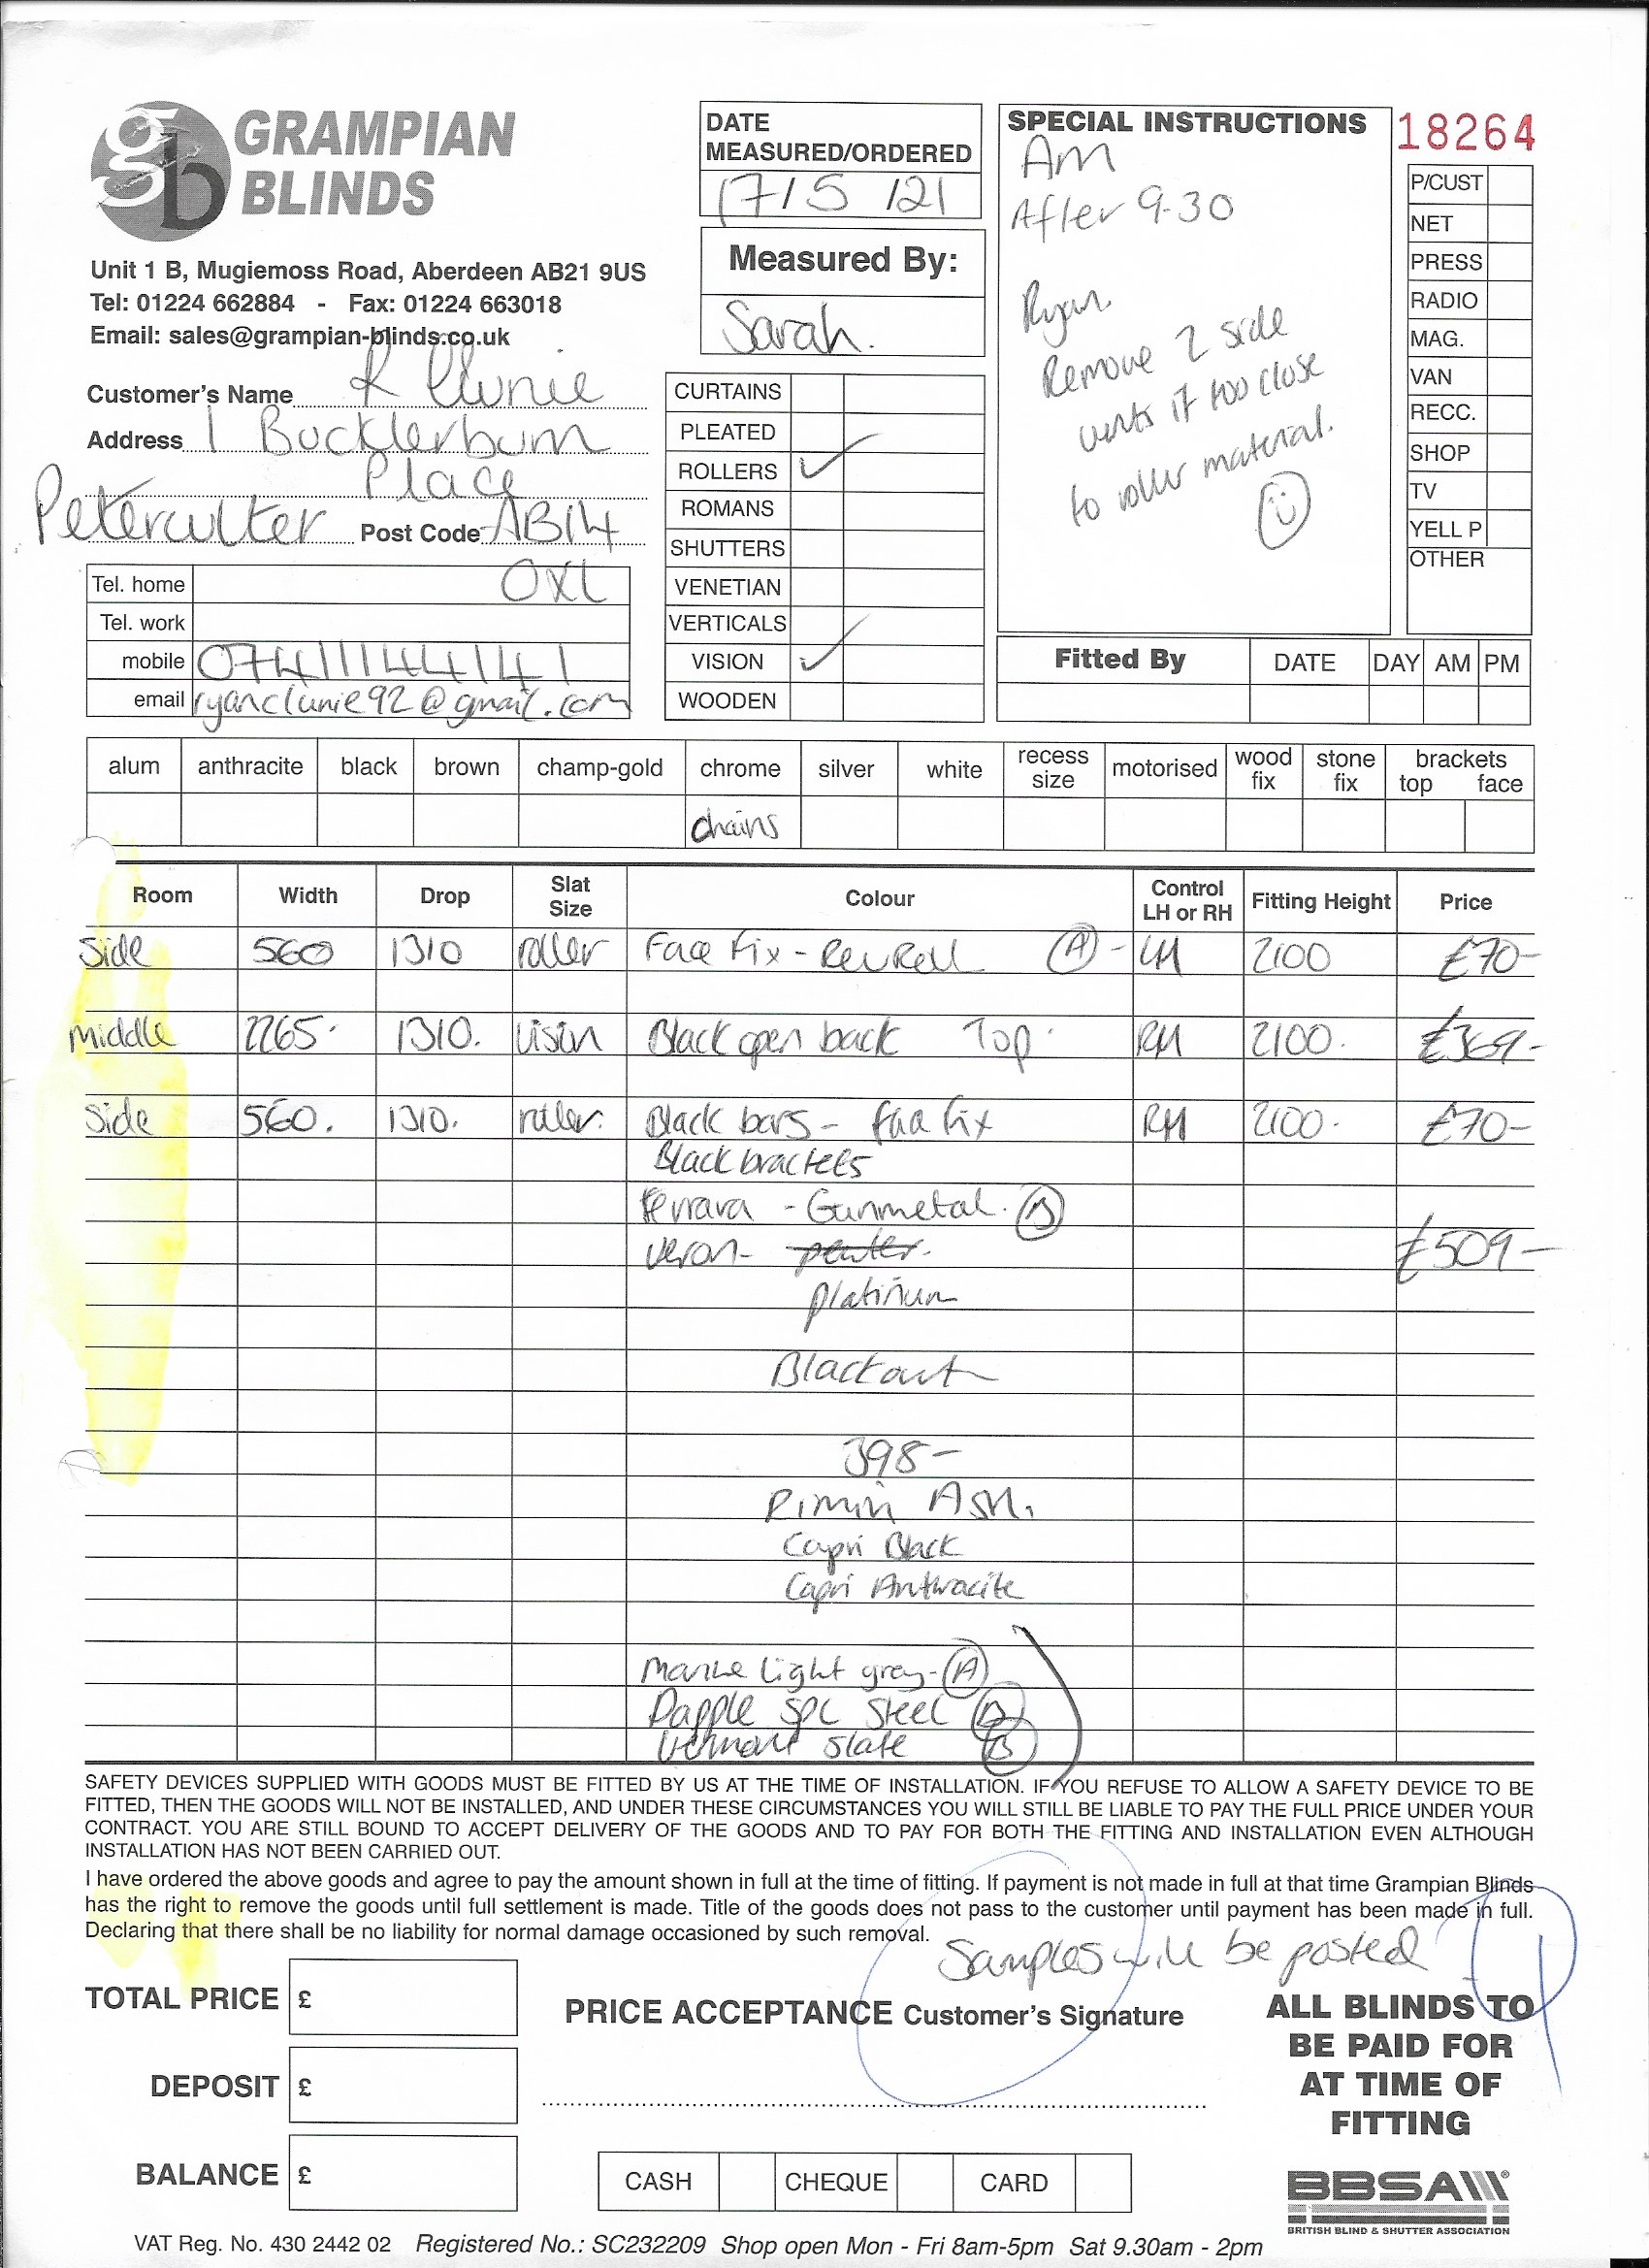 gb GRAMPIAN BLINDS
Unit 1 B, Mugiemoss Road, Aberdeen AB21 9US
Tel: 01224 662884 - Fax: 01224 663018
Email: sales@grampian-blinds.co.uk
Customer's Name R Clunie
Address 1 Bucklerburn
Place
Peterculter Post Code AB14
0XL
Tel. home
Tel. work
mobile 07411144141
email ryanclunie92@gmail.com
DATE
MEASURED/ORDERED
17/5/21
Measured By:
Sarah.
CURTAINS
PLEATED
ROLLERS ✓
ROMANS
SHUTTERS
VENETIAN
VERTICALS
VISION ✓
WOODEN
SPECIAL INSTRUCTIONS
Am
After 9-30
Ryan
Remove 2 side
vents if too close
to roller material.
18264
P/CUST
NET
PRESS
RADIO
MAG.
VAN
RECC.
SHOP
TV
YELL P
OTHER
Fitted By DATE DAY AM PM
alum anthracite black brown champ-gold chrome silver white recess size motorised wood fix stone fix brackets top face
chains
Room Width Drop Slat Size Colour Control LH or RH Fitting Height Price
Side 560 1310 roller Face Fix - Rev Roll (A) - LH 2100 £70-
Middle 2265 1310. vision Black open back Top RH 2100. £369-
Side 560. 1310. roller. Black bars - face fix RH 2100. £70-
Black brackets
Ferrara - Gunmetal. (B)
pewter. £509-
platinum
Blackout
398-
Rimini Ash.
Capri Black
Capri Anthracite
Light grey - (A)
Dapple SPC Steel (B)
Vermont Slate (B)
SAFETY DEVICES SUPPLIED WITH GOODS MUST BE FITTED BY US AT THE TIME OF INSTALLATION. IF YOU REFUSE TO ALLOW A SAFETY DEVICE TO BE
FITTED, THEN THE GOODS WILL NOT BE INSTALLED, AND UNDER THESE CIRCUMSTANCES YOU WILL STILL BE LIABLE TO PAY THE FULL PRICE UNDER YOUR
CONTRACT. YOU ARE STILL BOUND TO ACCEPT DELIVERY OF THE GOODS AND TO PAY FOR BOTH THE FITTING AND INSTALLATION EVEN ALTHOUGH
INSTALLATION HAS NOT BEEN CARRIED OUT.
I have ordered the above goods and agree to pay the amount shown in full at the time of fitting. If payment is not made in full at that time Grampian Blinds
has the right to remove the goods until full settlement is made. Title of the goods does not pass to the customer until payment has been made in full.
Declaring that there shall be no liability for normal damage occasioned by such removal.
Samples will be posted
TOTAL PRICE £
PRICE ACCEPTANCE Customer's Signature
DEPOSIT £
BALANCE £
CASH CHEQUE CARD
ALL BLINDS TO
BE PAID FOR
AT TIME OF
FITTING
BBSA
BRITISH BLIND & SHUTTER ASSOCIATION
VAT Reg. No. 430 2442 02 Registered No.: SC232209 Shop open Mon - Fri 8am-5pm Sat 9.30am - 2pm